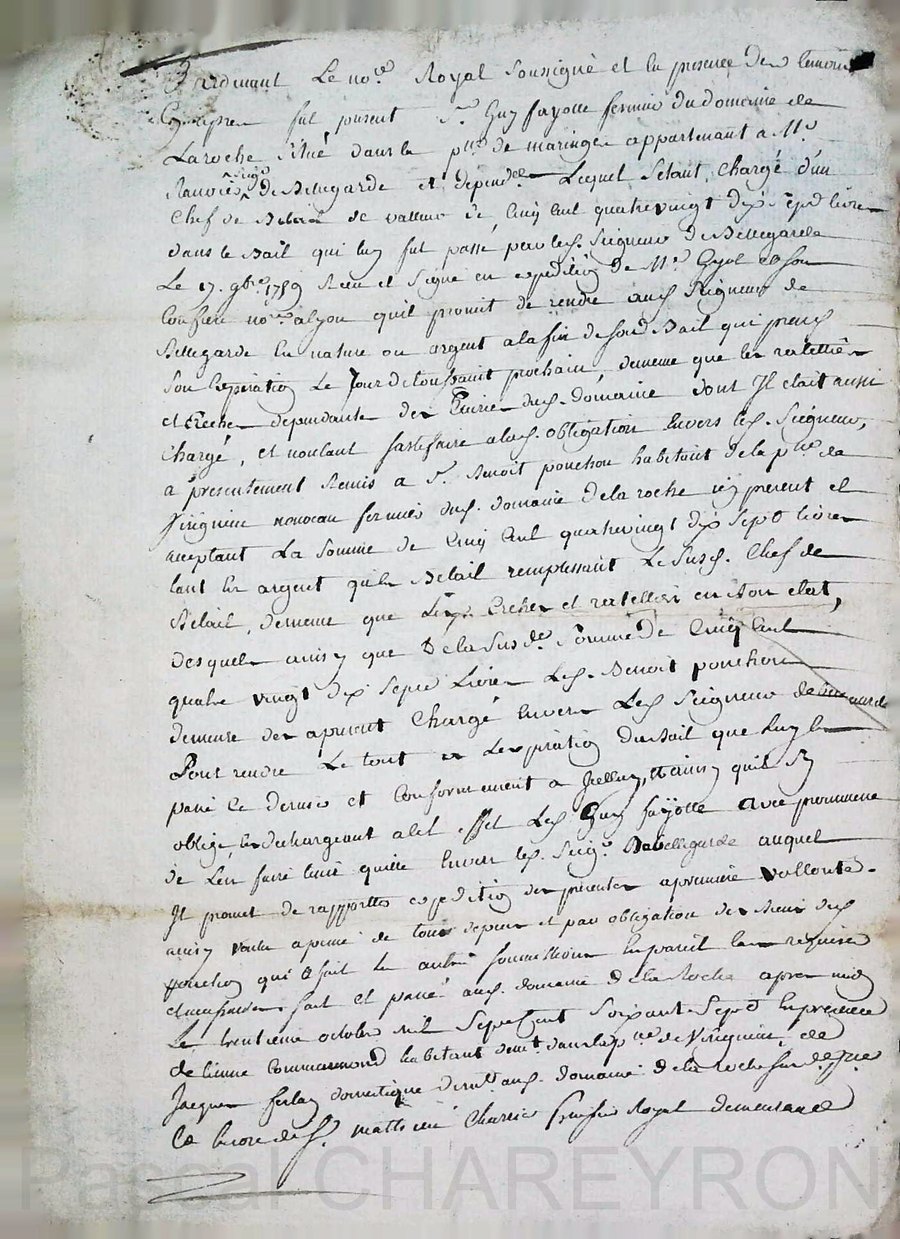 Pardevant Le no.re Royal Soussigné et En presence des temoins
fut present S.r Guy fayolle fermier du domeine de
Laroche Situé dans la p.sse de maringe appartenant a M.r
de Bellegarde et depend.ces Lequel Setant Chargé d'un
Chef de Betail de valleur de Cinq Cent quatrevingt dix Sept livres
dans le Bail qui luy fut passé par led. Seigneur de Bellegarde
Le 17. 9bre 1759 Receu et Signé en expedition de M.e et son
Confrere no.re alyon quil promit de rendre aud. Seigneur de
Bellegarde En nature ou argent a la fin de sond. Bail qui prend
Son Expiration Le Jour de toussaint prochain, dememe que les ratelliers
et Creches dependants des Ecuries dud. domaine dont Il etait aussi
Chargé, et voulant satisfaire alad. obligation Envers led. Seigneur,
a presentement Remis a S.r Benoit ponchon habitant de la p.sse de
Virignieu nouveau fermier dud. domaine de la roche icy present et
acceptant La Somme de Cinq Cent quatrevingt dix Sept livres
tant En argent qu'En Betail remplassant Le Susd. Chef de
Betail, dememe que Creches et ratelliers en bon etat,
desquels ainsy que De la Susd.e Somme de Cinq Cent
quatre vingt dix Sept Livres Led. Benoit ponchon
demeure des apresent Chargé Envers Led. Seigneur de Bellegarde
Pour rendre Le tout a Lexpiration du Bail que Luy En
passé Ce dernier et Conformement a Jcelluy, ainsy quil Sy
oblige En dechargeant a cet effet Led. Guy fayolle avec promesse
de L'en faire tenir quitte Envers led. Seig.r De bellegarde auquel
Il promet de rapporter expedition des presentes a premiere vollonté.
ainsy voulu a peine de tous depens et par obligation des biens dud.
ponchon qu'il a fait Les autres Soumissions En pareil Cas requises
et necessaires fait et passé aud. domaine de la Roche apres midy
Le trentieme octobre mil Sept Cent Soixante Sept En presence
de habitant dem.t dans la p.sse de Virignieu, et de
Jacques ferlay domestique aud. domaine de la Roche
Et Encore de S.r mathieu Charrie Royal demeurant a
Pascal CHAREYRON